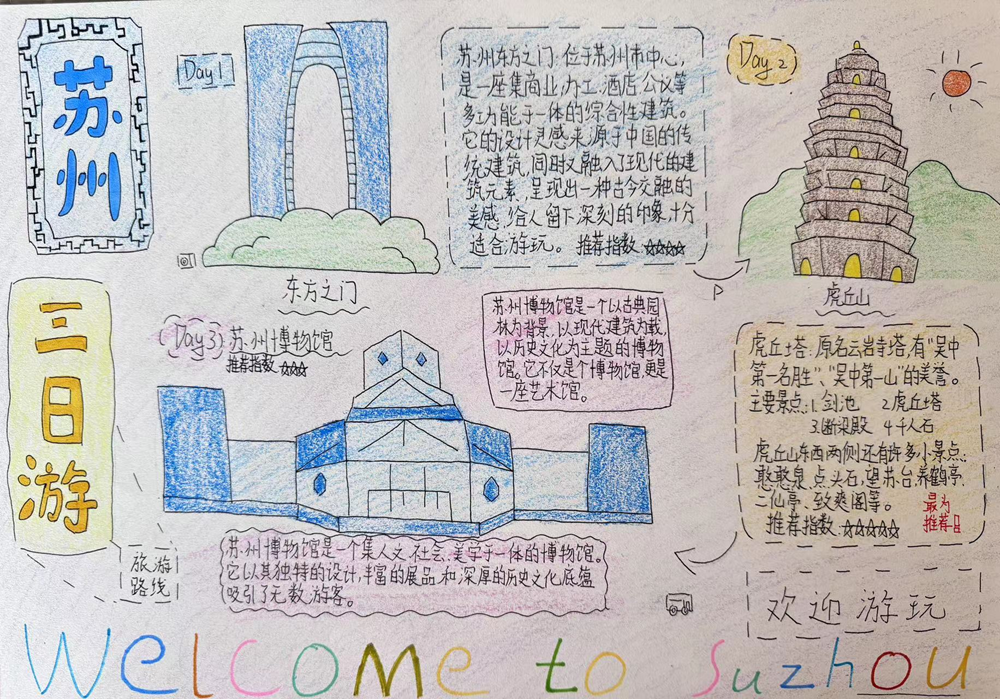 苏州
三日游
Day1
东方之门
苏州东方之门:位于苏州市中心,
是一座集商业,办工,酒店,公议等
多功能于一体的综合性建筑。
它的设计灵感来源于中国的传
统建筑,同时又融入了现代的建
筑元素,呈现出一种古今交融的
美感,给人留下深刻的印象,十分
适合游玩。 推荐指数 ☆☆☆☆
Day 2
虎丘山
虎丘塔:原名云岩寺塔,有“吴中
第一名胜”、“吴中第一山”的美誉。
主要景点:1.剑池 2.虎丘塔
3.断梁殿 4.千人石
虎丘山东西两侧还有许多小景点:
憨憨泉,点头石,望苏台,养鹤亭,
二仙亭、致爽阁等。
推荐指数 ☆☆☆☆☆
最为
推荐!
Day3 苏州博物馆
推荐指数 ☆☆☆
苏州博物馆是一个以古典园
林为背景,以现代建筑为载,
以历史文化为主题的博物
馆。它不仅是个博物馆,更是
一座艺术馆。
苏州博物馆是一个集人文,社会,美学于一体的博物馆。
它以其独特的设计,丰富的展品,和深厚的历史文化底蕴
吸引了无数游客。
旅游
路线
P
欢迎游玩
Welcome to Suzhou